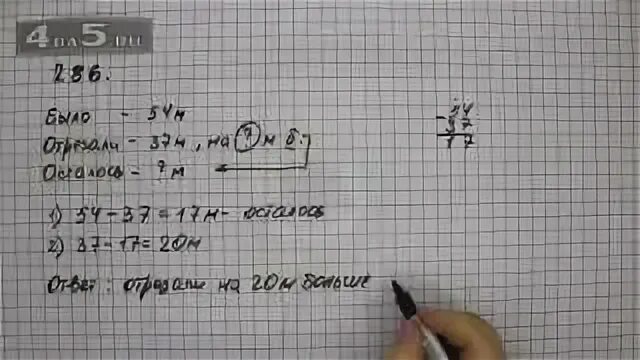 4на5.ru
286.
Было - 54м
Отрезали - 37м, на ? м б.
Осталось - ? м
1) 54-37=17м- осталось
2) 37-17=20м
Ответ: отрезали на 20м больше
54
- 37
17